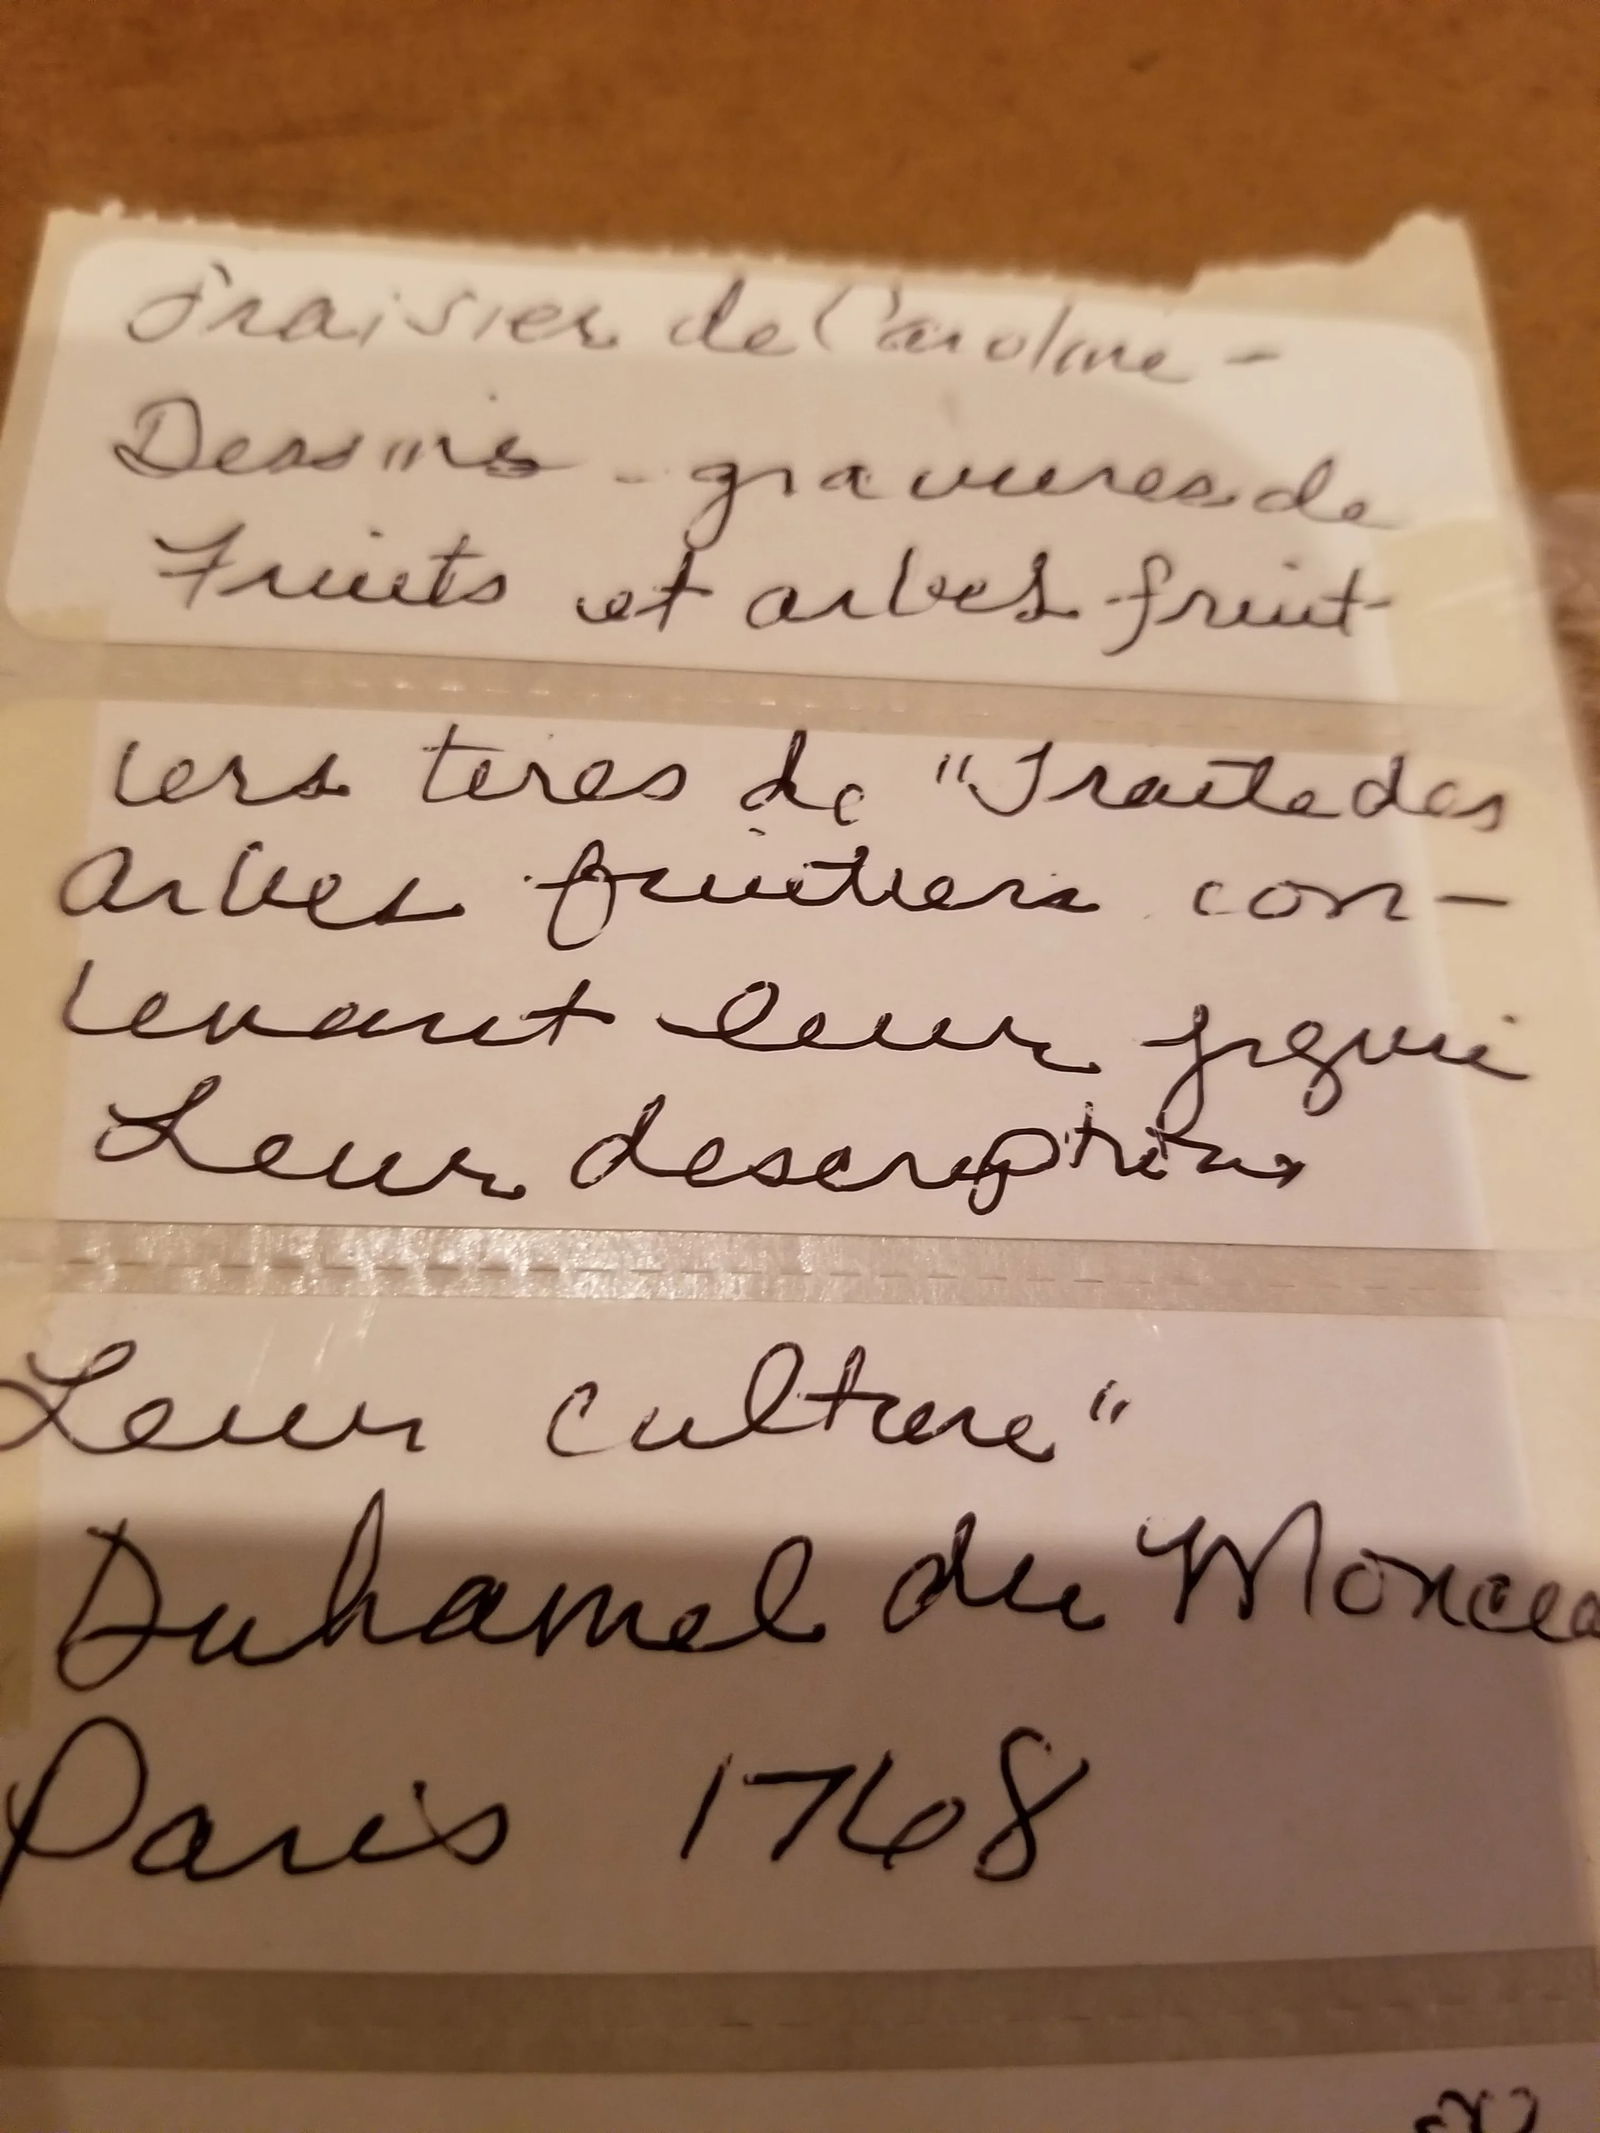 Fraisier de Caroline -
Dessins - gravures de
Fruits et arbres fruit-
iers tires de "Traite des
arbres fruitiers con-
tenant leur figure
Leur description
Leur culture"
Duhamel du Moncea
Paris 1768